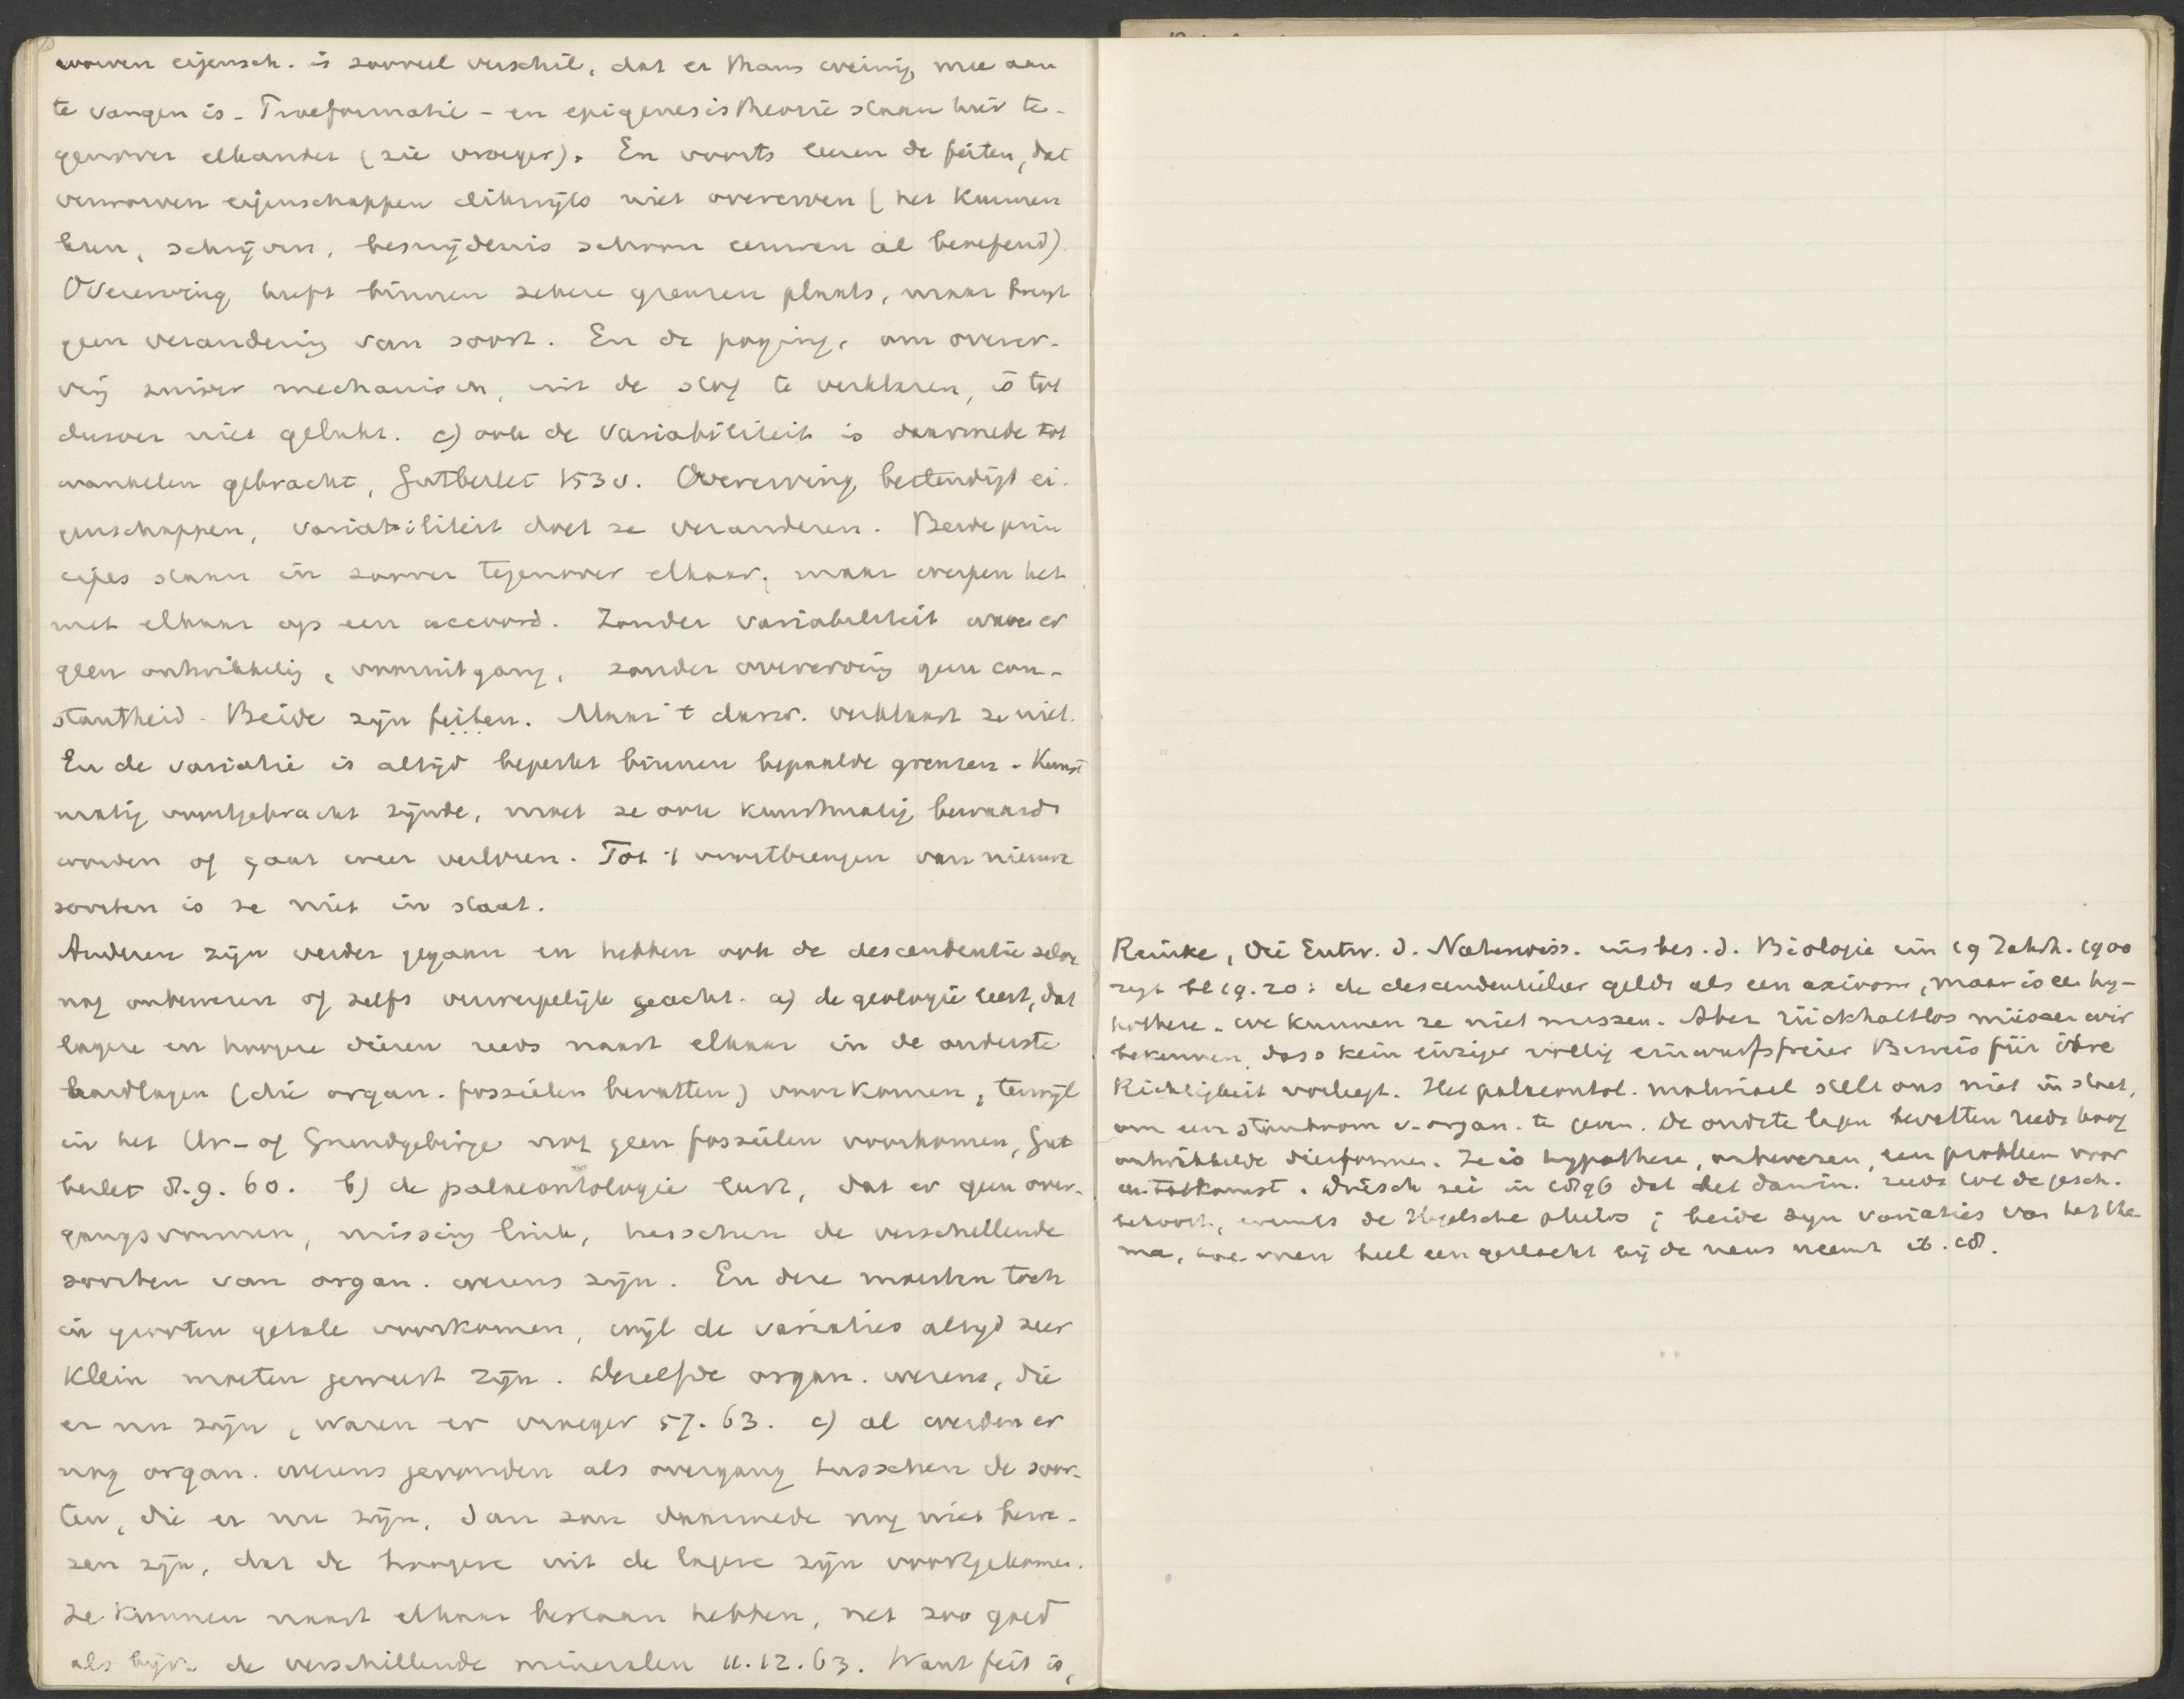 worven eijensch. is zooveel verschil, dat er thans weinig mee aan
te vangen is. Praeformatie- en epigenesistheorie staan hier te-
genover elkander (zie vroeger). En voorts leeren de feiten, dat
verworven eigenschappen dikwijls niet overerven (het kunnen
lezen, schrijven, besnijdenis schoon eeuwen al beoefend).
Overerving heeft binnen zekere grenzen plaats, maar brengt
geen verandering van soort. En de poging, om overer-
ving zuiver mechanisch, uit de stof te verklaren, is tot
dusver niet gelukt. c) ook de variabiliteit is daarmede tot
wankelen gebracht, Gutberlet 153 v. Overerving bestendigt ei-
genschappen, variabiliteit doet ze veranderen. Beide prin
cipes staan in zoover tegenover elkaar, maar werpen het
met elkaar op een accoord. Zonder variabiliteit ware er
geen ontwikkeling, vooruitgang, zonder overerving geen con-
stantheid. Beide zijn feiten. Maar 't darw. verklaart ze niet.
En de variatie is altijd beperkt binnen bepaalde grenzen. Kunst
matig voortgebracht zijnde, moet ze ook kunstmatig bewaard
worden of gaat weer verloren. Tot 't voortbrengen van nieuwe
soorten is ze niet in staat.
Anderen zijn verder gegaan en hebben ook de descendentie zelve
nog onbewezen of zelfs verwerpelijk geacht. a) de geologie leert, dat
lagere en hoogere dieren reeds naast elkaar in de onderste
aardlagen (die organ. fossielen bevatten) voorkomen, terwijl
in het Ur- of Grundgebirge nog geen fossielen voorkomen, Gut
berlet 8.9. 60. b) de palaeontologie leert, dat er geen over-
gangsvormen, missing link, tusschen de verschillende
soorten van organ. wezens zijn. En deze moesten toch
in grooten getale voorkomen, wijl de variaties altijd zeer
klein moeten geweest zijn. Dezelfde organ. wezens, die
er nu zijn, waren er vroeger 57. 63. c) al werden er
nog organ. wezens gevonden als overgang tusschen de soor-
ten, die er nu zijn, dan zou daarmede nog niet bewe-
zen zijn, dat de hoogere uit de lagere zijn voortgekomen.
Ze kunnen naast elkaar bestaan hebben, net zoo goed
als bijv. de verschillende mineralen 11.12.63. Want feit is,
Reinke, Die Entw. d. Naturwiss. insbes. d. Biologie im 19 Jahrh. 1900
zegt bl 19. 20: de descendentieleer geldt als een axioom, maar is een hy-
pothese. We kunnen ze niet missen. Aber rückhaltlos müssen wir
bekennen, dass kein einziger völlig einwurfsfreier Beweis für ihre
Richtigkeit vorliegt. Het palaeontol. materiaal stelt ons niet in staat,
om een stamboom v. organ. te geven. De oudste lagen bevatten reeds hoog
ontwikkelde diervormen. Ze is hypothese, onbewezen, een probleem voor
de toekomst. Driesch zei in 1896 dat het darwin. reeds tot de gesch.
behoort, evenals de Hegelsche philos; beide zijn variaties van het the
ma, hoe men heel een geslacht bij de neus neemt ib. 18.